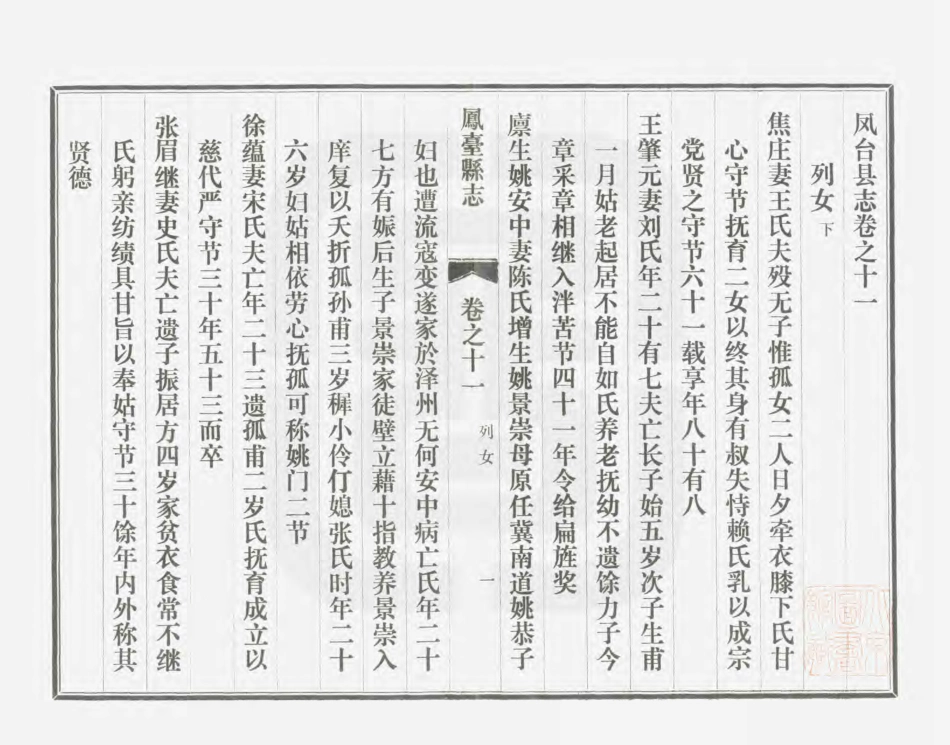 凤台县志卷之十一
列女 下
焦庄妻王氏夫殁无子惟孤女二人日夕牵衣膝下氏甘
心守节抚育二女以终其身有叔失恃赖氏乳以成宗
党贤之守节六十一载享年八十有八
王肇元妻刘氏年二十有七夫亡长子始五岁次子生甫
一月姑老起居不能自如氏养老抚幼不遗馀力子今
章采章相继入泮苦节四十一年令给扁旌奖
廪生姚安中妻陈氏增生姚景崇母原任冀南道姚恭子
鳳臺縣志 卷之十一 列女 一
妇也遭流寇变遂家於泽州无何安中病亡氏年二十
七方有娠后生子景崇家徒壁立藉十指教养景崇入
庠复以夭折孤孙甫三岁穉小伶仃媳张氏时年二十
六岁妇姑相依劳心抚孤可称姚门二节
徐蕴妻宋氏夫亡年二十三遗孤甫二岁氏抚育成立以
慈代严守节三十年五十三而卒
张眉继妻史氏夫亡遗子振居方四岁家贫衣食常不继
氏躬亲纺绩具甘旨以奉姑守节三十馀年内外称其
贤德